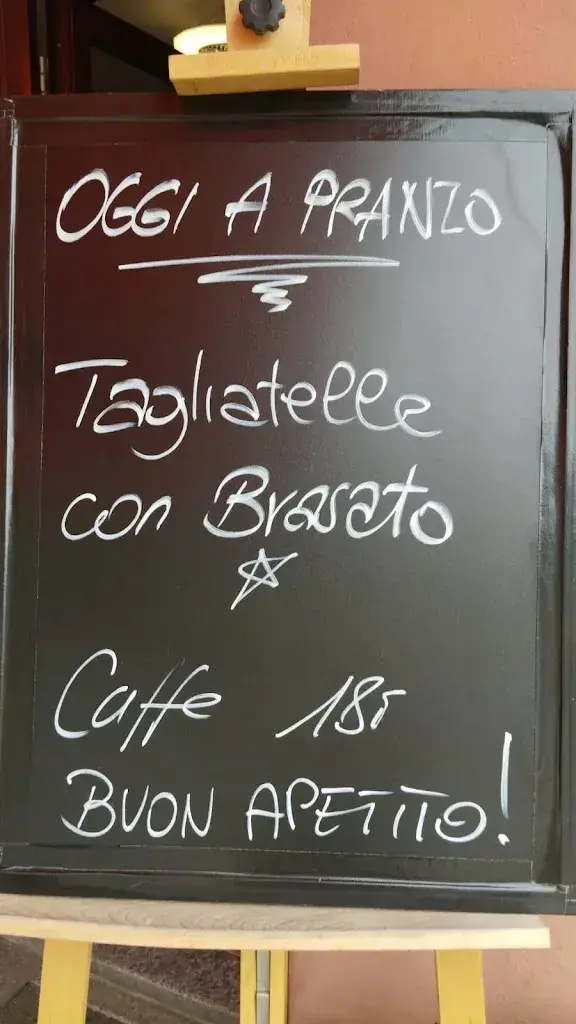 OGGI A PRANZO
Tagliatelle
con Brasato
Caffe 18r
BUON APETITO!